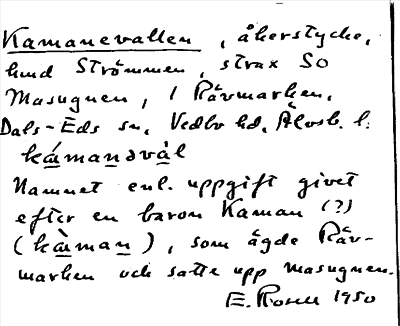 Kamanevallen, åkerstycke,
hmd Strömmen, strax SO
Masugnen, i Rävmarken,
Dals-Eds sn, Vedbo hd, Älvsb. l.
kámanəvàl
Namnet enl. uppgift givet
efter en baron Kaman (?)
(kàman), som ägde Räv-
marken och satte upp masugnen.
E. Rosell 1950